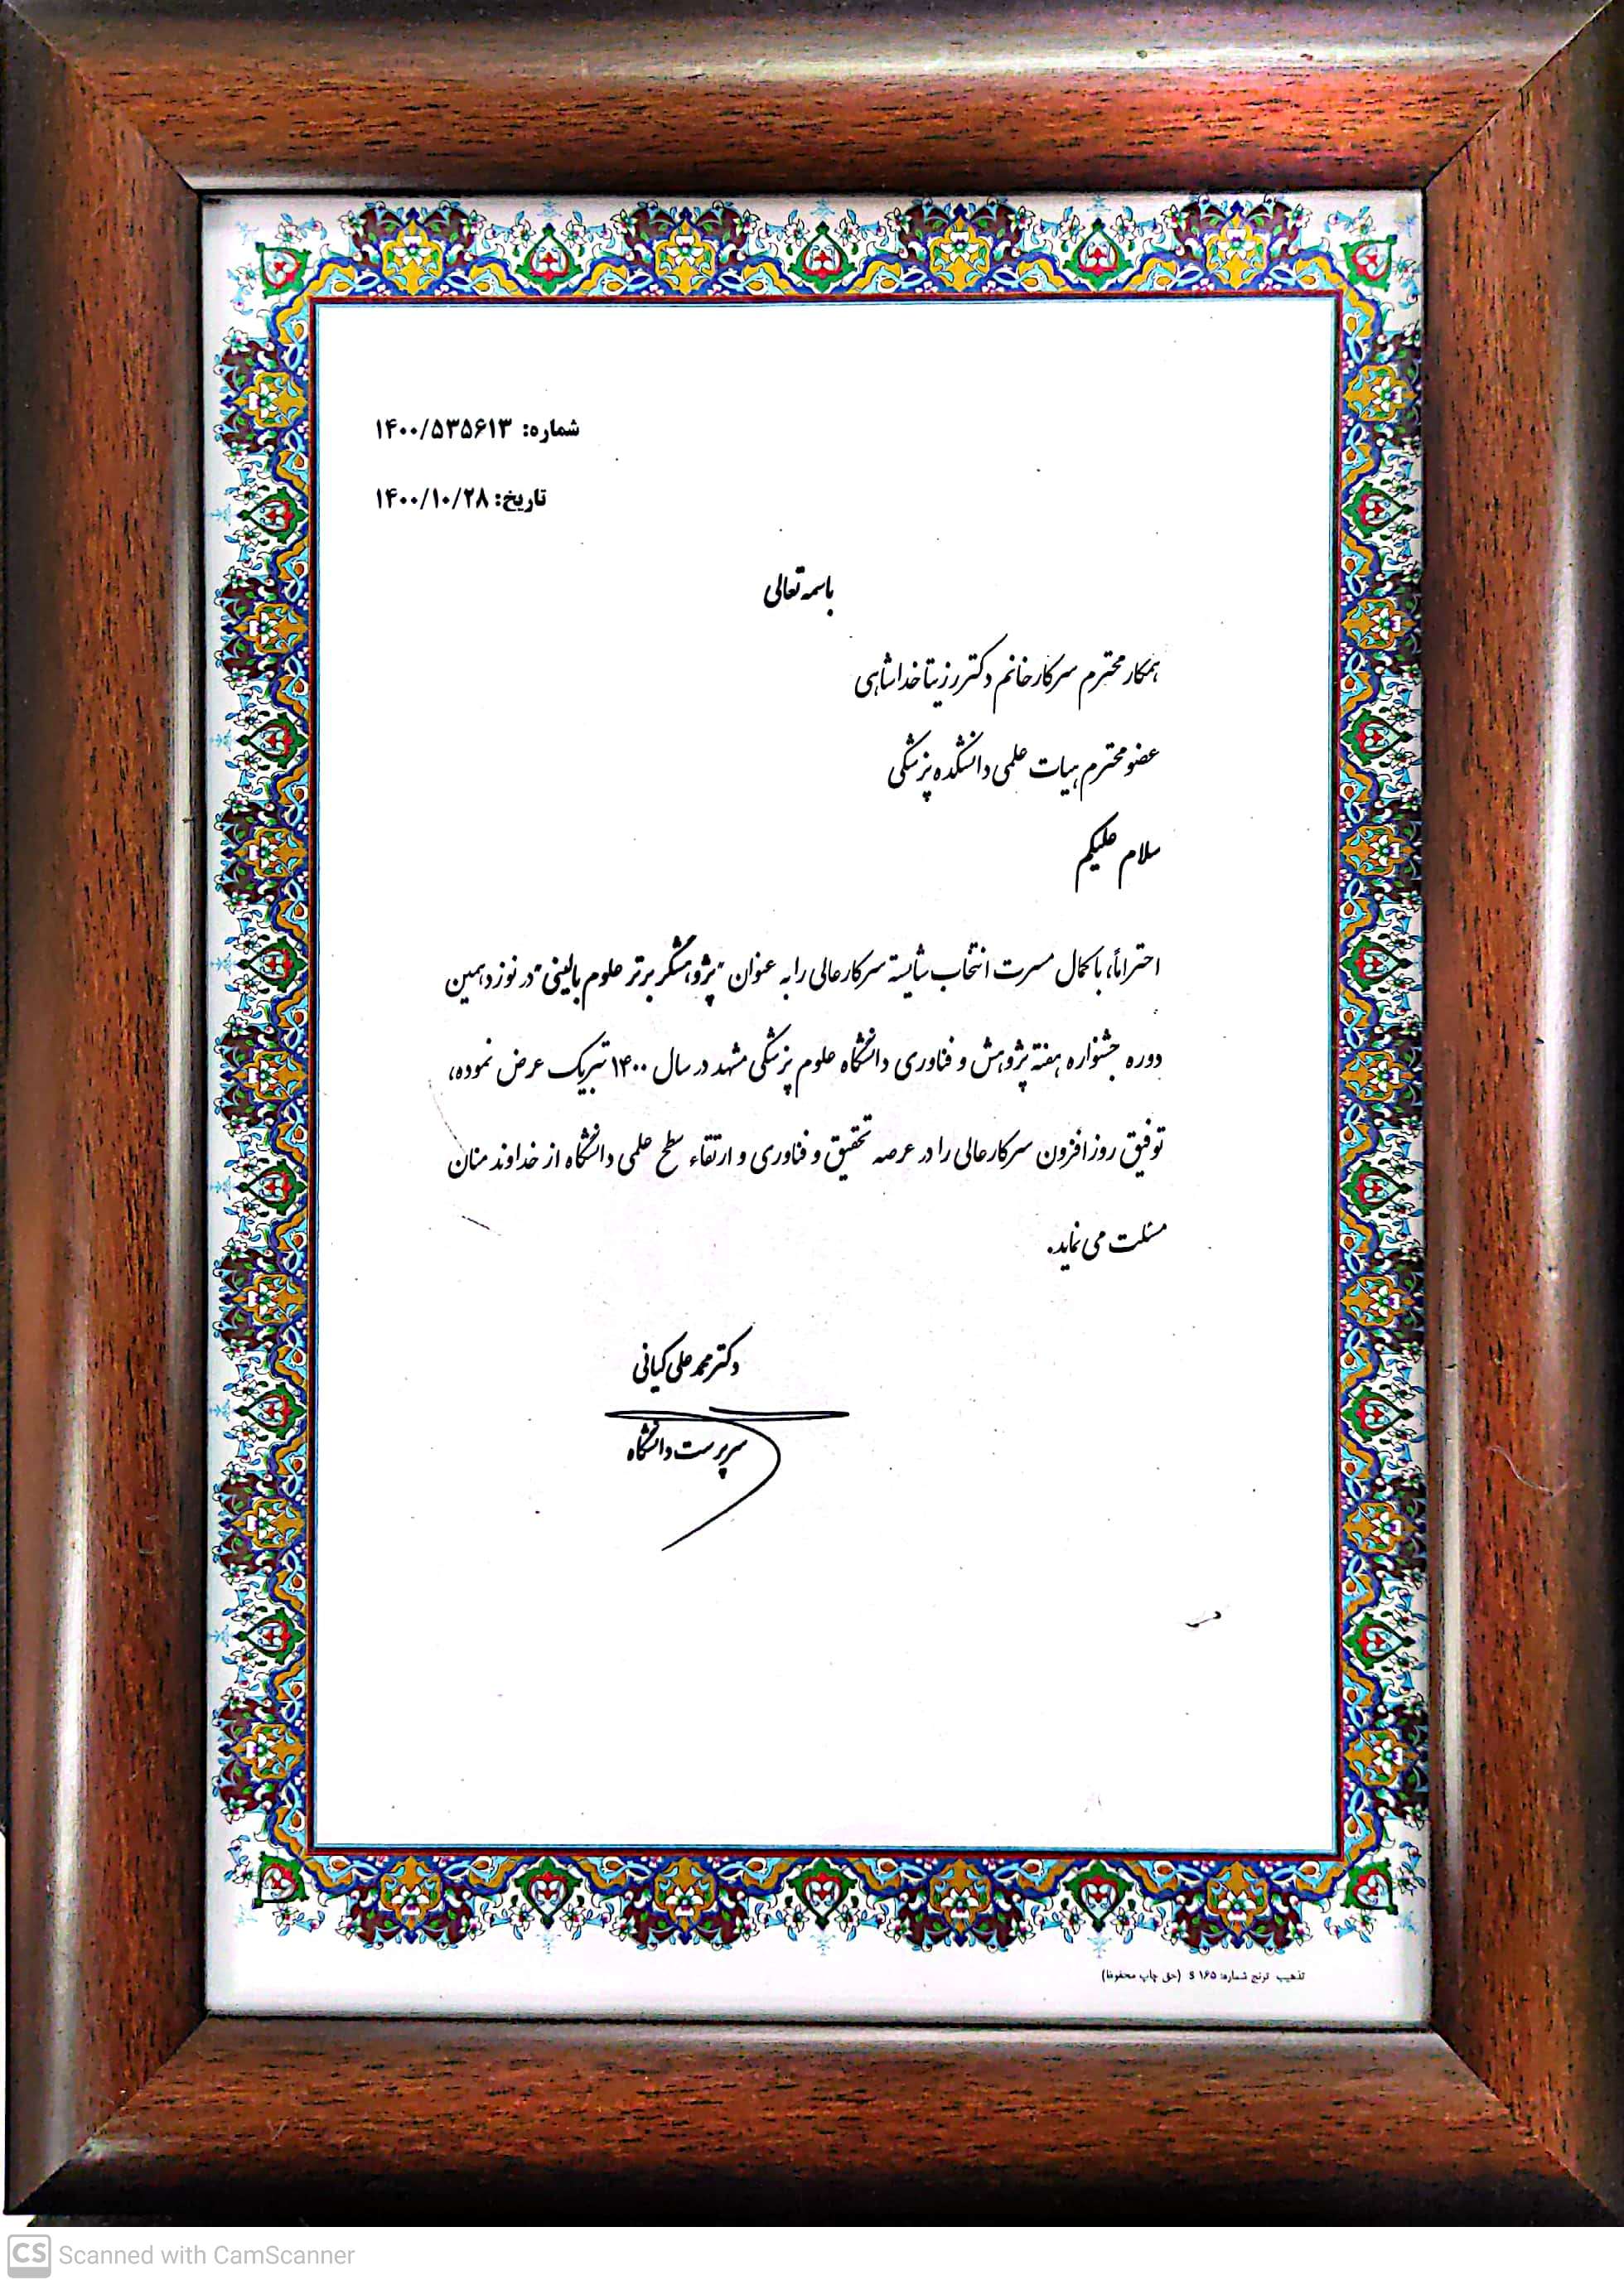 شماره: ۱۴۰۰/۵۳۵۶۱۳
تاریخ: ۱۴۰۰/۱۰/۲۸
باسمه تعالی
همکار محترم سرکار خانم دکتر رزیتا خداشاهی
عضو محترم هیات علمی دانشکده پزشکی
سلام علیکم
احتراماً، با کمال مسرت انتخاب شایسته سرکارعالی را به عنوان "پژوهشگر برتر علوم بالینی" در نوزدهمین
دوره جشنواره هفته پژوهش و فناوری دانشگاه علوم پزشکی مشهد در سال ۱۴۰۰ تبریک عرض نموده،
توفیق روزافزون سرکارعالی را در عرصه تحقیق و فناوری و ارتقاء سطح علمی دانشگاه از خداوند منان
مسئلت می نماید.
دکتر محمد علی کیانی
سرپرست دانشگاه
تذهیب ترنج شماره: S ۱۶۵ (حق چاپ محفوظ)
CS Scanned with CamScanner